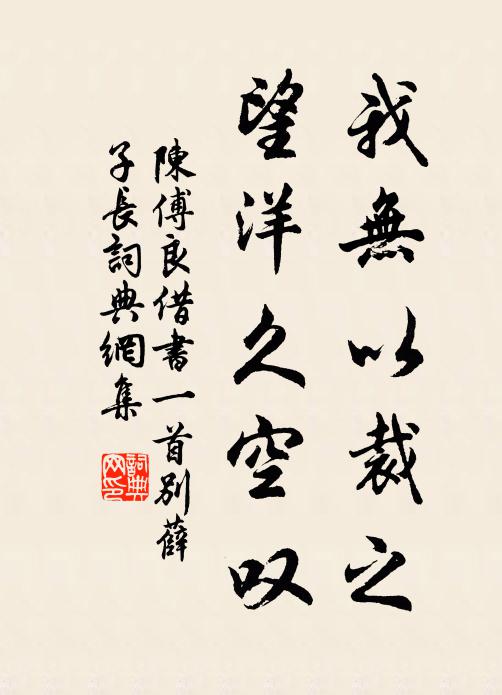 我無以裁之
望洋久空叹
陳傅良借書一首別薛
子長詞典網集
詞典
网印